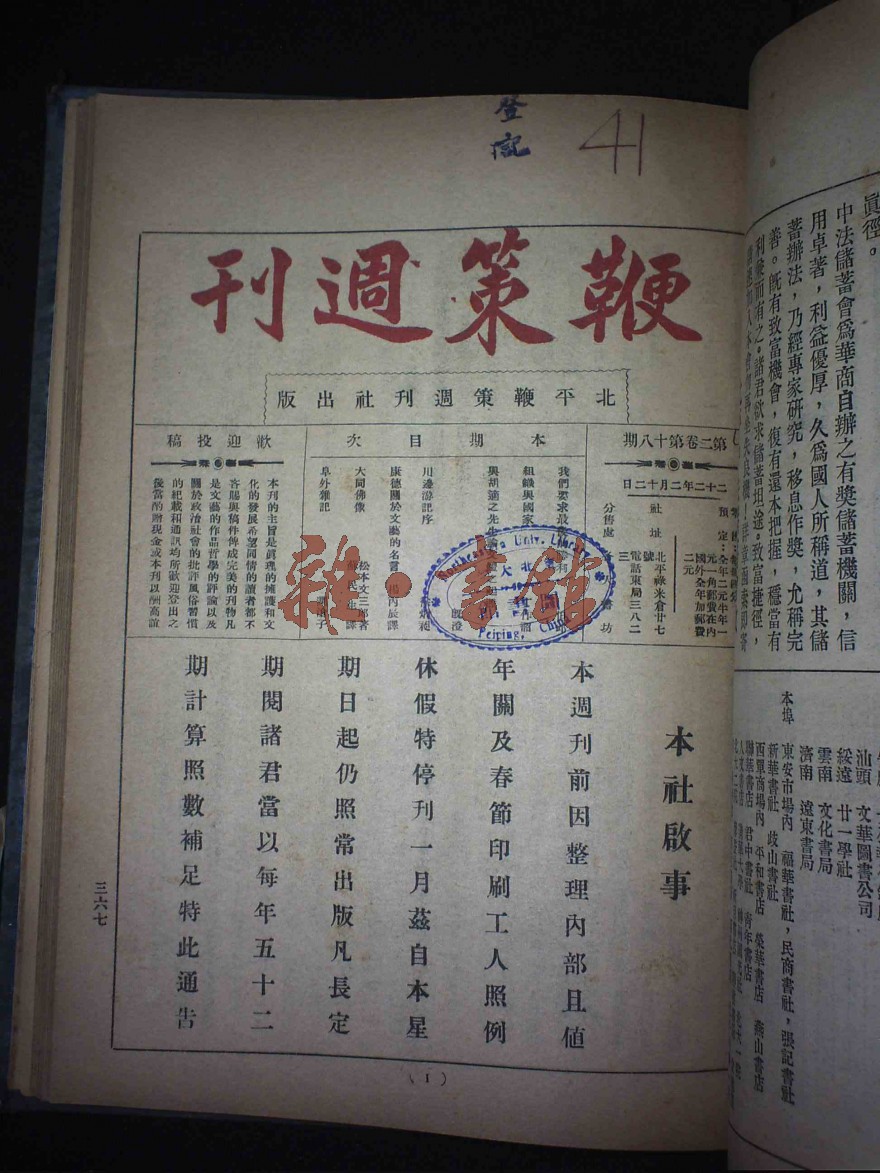 登記
41
鞭策週刊
北平鞭策週刊社出版
第二卷第十八期
二十二年二月十二日
預定：全年二元半年一
元一角郵費在內
國外全年加郵費
二元
社址
北平祿米倉廿七
號
電話東局三八二
三
分售處
書坊
本期目次
我們要求最
組織與國家
與胡適之先生
川邊游記序
康德關於文藝的名言
大同佛像
松本文三郎著
早外雜記
歡迎投稿
本刊的主旨是眞理的擁護和文
化的發展希望同情的讀者都不
吝賜與稿件俾成完美的刊物凡
是文藝的作品哲學的評論以及
關於政治社會的批評風俗習慣
的紀載和通訊均所歡迎登出之
後當酌贈現金或本刊以酬高誼
雜·書館
Northeastern Univ. Library
Peiping, China
本社啟事
本週刊前因整理內部且値
年關及春節印刷工人照例
休假特停刊一月茲自本星
期日起仍照常出版凡長定
期閱諸君當以每年五十二
期計算照數補足特此通告
三六七
(1)
眞徑。
中法儲蓄會爲華商自辦之有獎儲蓄機關，信
用卓著，利益優厚，久爲國人所稱道，其儲
蓄辦法，乃經專家研究，移息作獎，尤稱完
善。既有致富機會，復有還本把握，穩當有
利兼而有之。諸君欲求儲蓄坦途。致富捷徑，
本埠
汕頭 文華圖書公司
綏遠 廿一學社
雲南 文化書局
濟南 遠東書局
東安市場內 福華書社，民商書社，張記書社
新華書社 岐山書社
西單商場內 平和書店 榮華書店 燕山書店
聯華書店 君中書社 青年書店